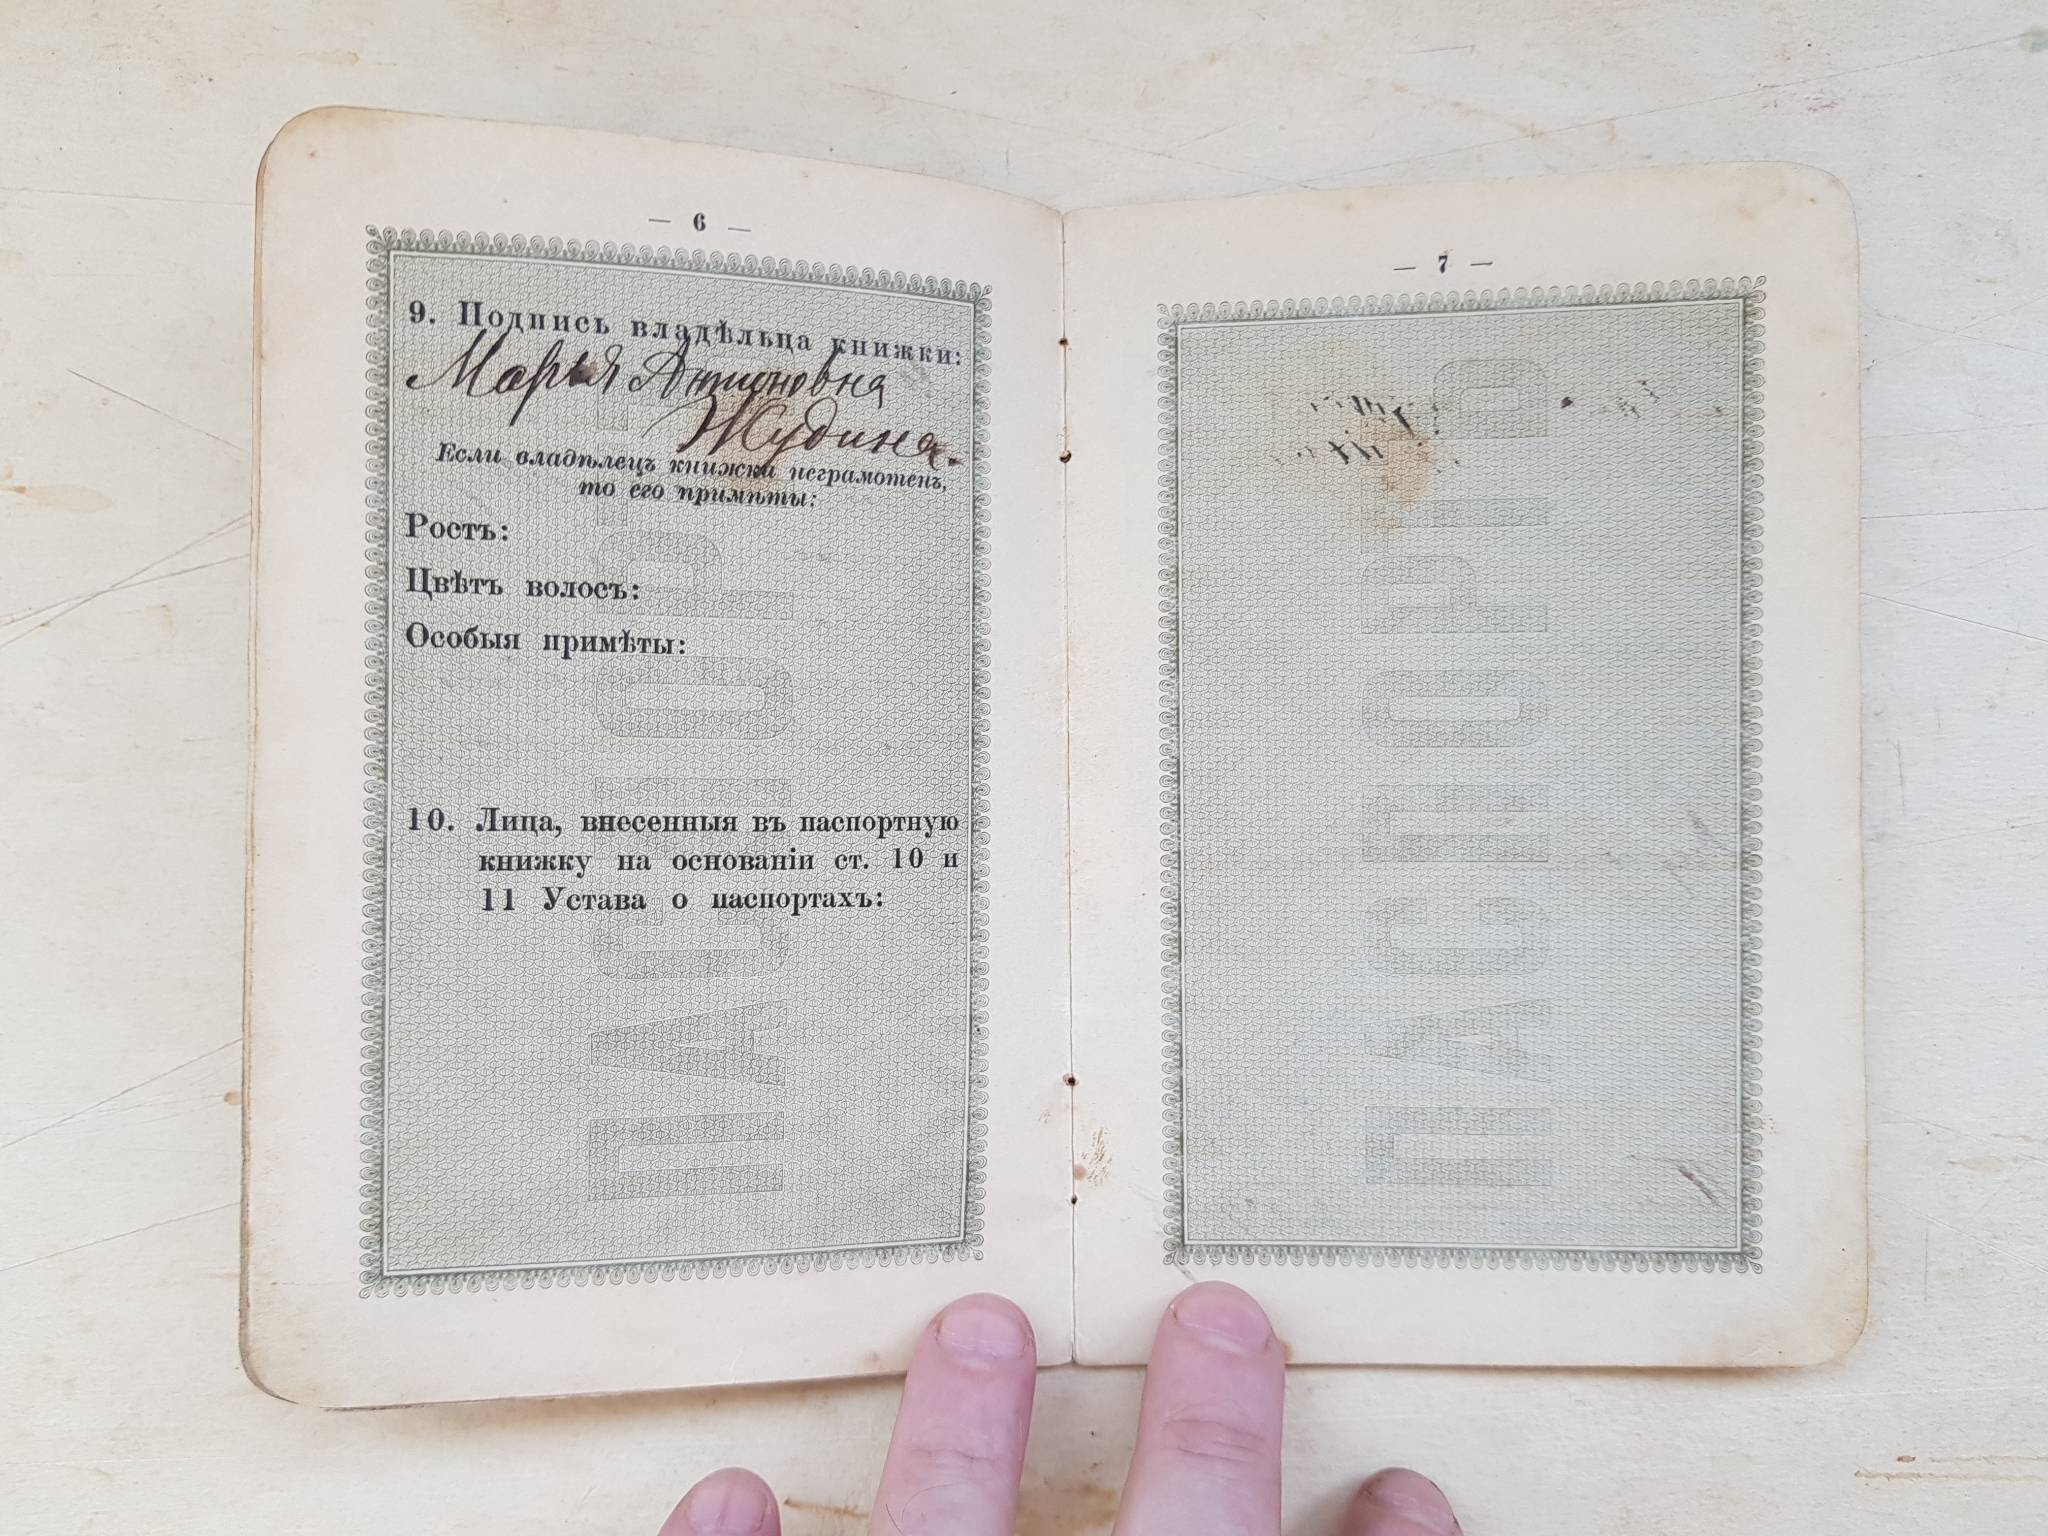 — 6 —
9. Подпись владѣльца книжки:
Марья Антоновна
Жудина.
Если владѣлецъ книжки неграмотенъ,
то его примѣты:
Ростъ:
Цвѣтъ волосъ:
Особыя примѣты:
10. Лица, внесенныя въ паспортную
книжку на основаніи ст. 10 и
11 Устава о паспортахъ:
— 7 —